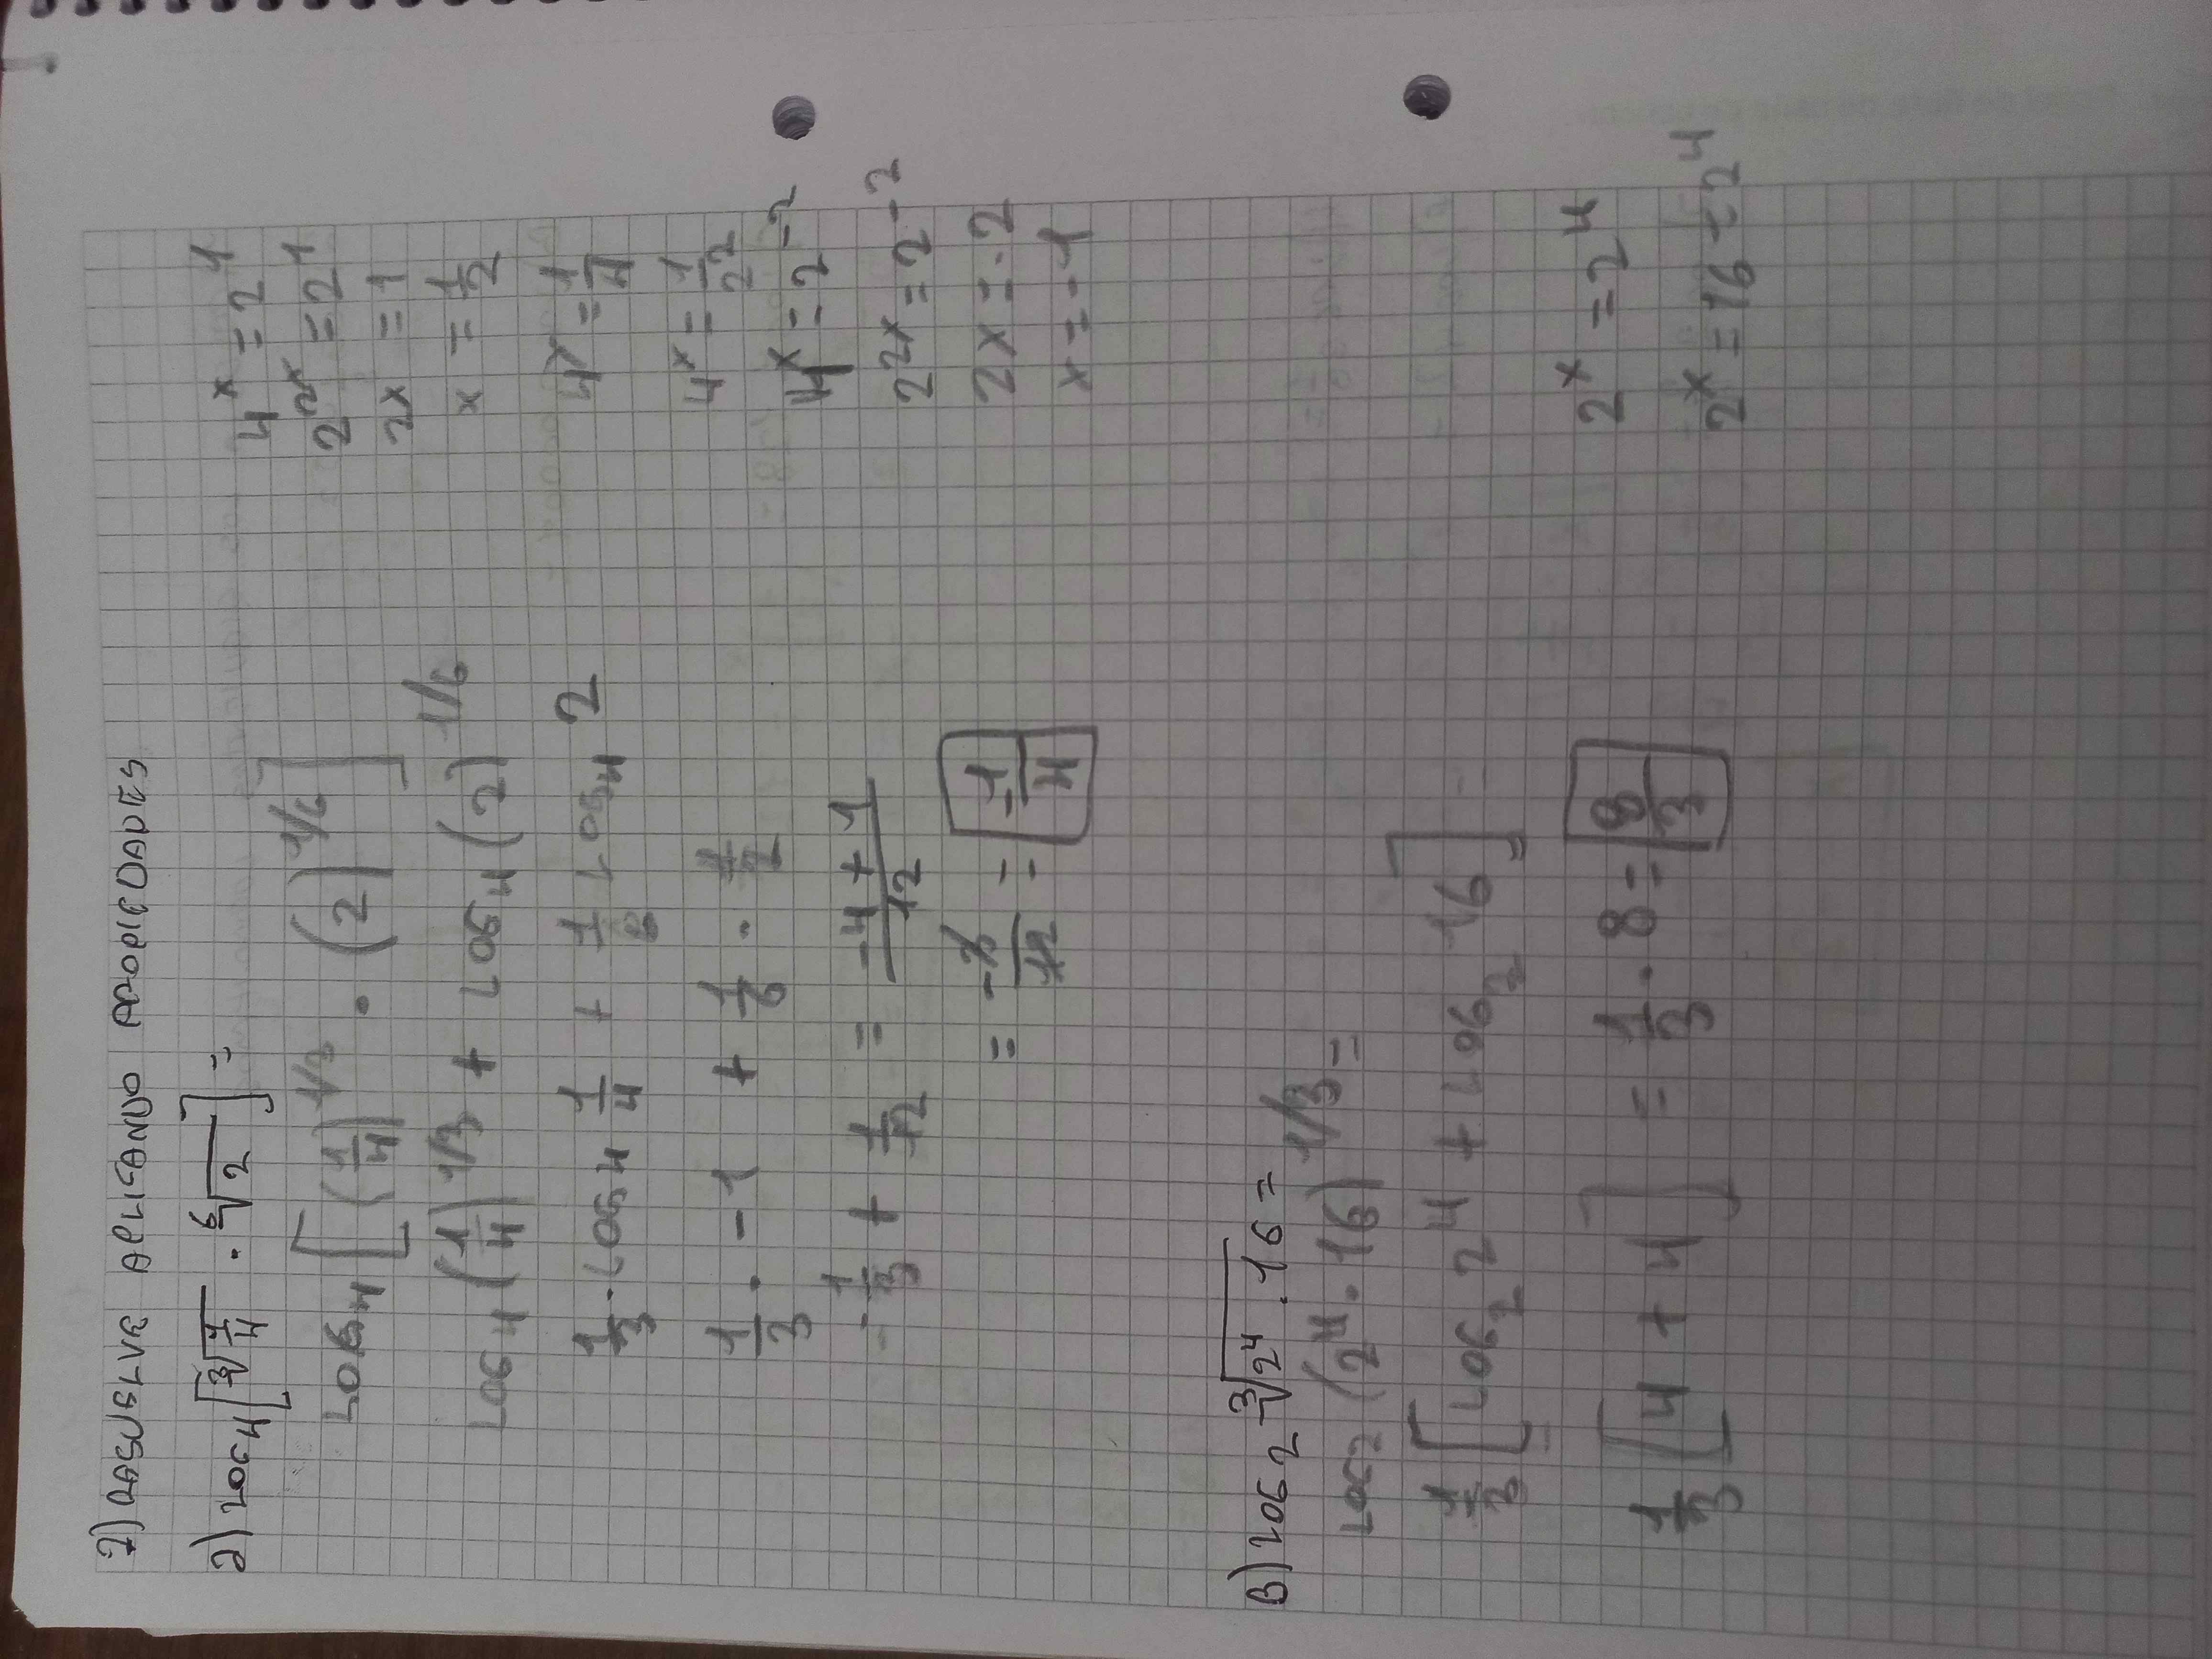 7) RESUELVE APLICANDO PROPIEDADES
a) LOG₄[∛(1/4) · ⁶√2] =
LOG₄[(1/4)^1/3 · (2)^1/6]
LOG₄(1/4)^1/3 + LOG₄(2)^1/6
1/3 · LOG₄ 1/4 + 1/6 LOG₄ 2
1/3 · -1 + 1/6 · 1/2
-1/3 + 1/12 = (-4+1)/12
= -3/12 = -1/4
4^x = 2^1
2^2x = 2^1
2x = 1
x = 1/2
4^x = 1/4
4^x = 1/2^2
4^x = 2^-2
2^2x = 2^-2
2x = -2
x = -1
B) LOG₂ ∛(2^4 · 16) =
LOG₂(2^4 · 16)^1/3 =
1/3 [LOG₂ 2^4 + LOG₂ 16] =
1/3 [4 + 4] = 1/3 · 8 = 8/3
2^x = 2^4
2^x = 16 = 2^4